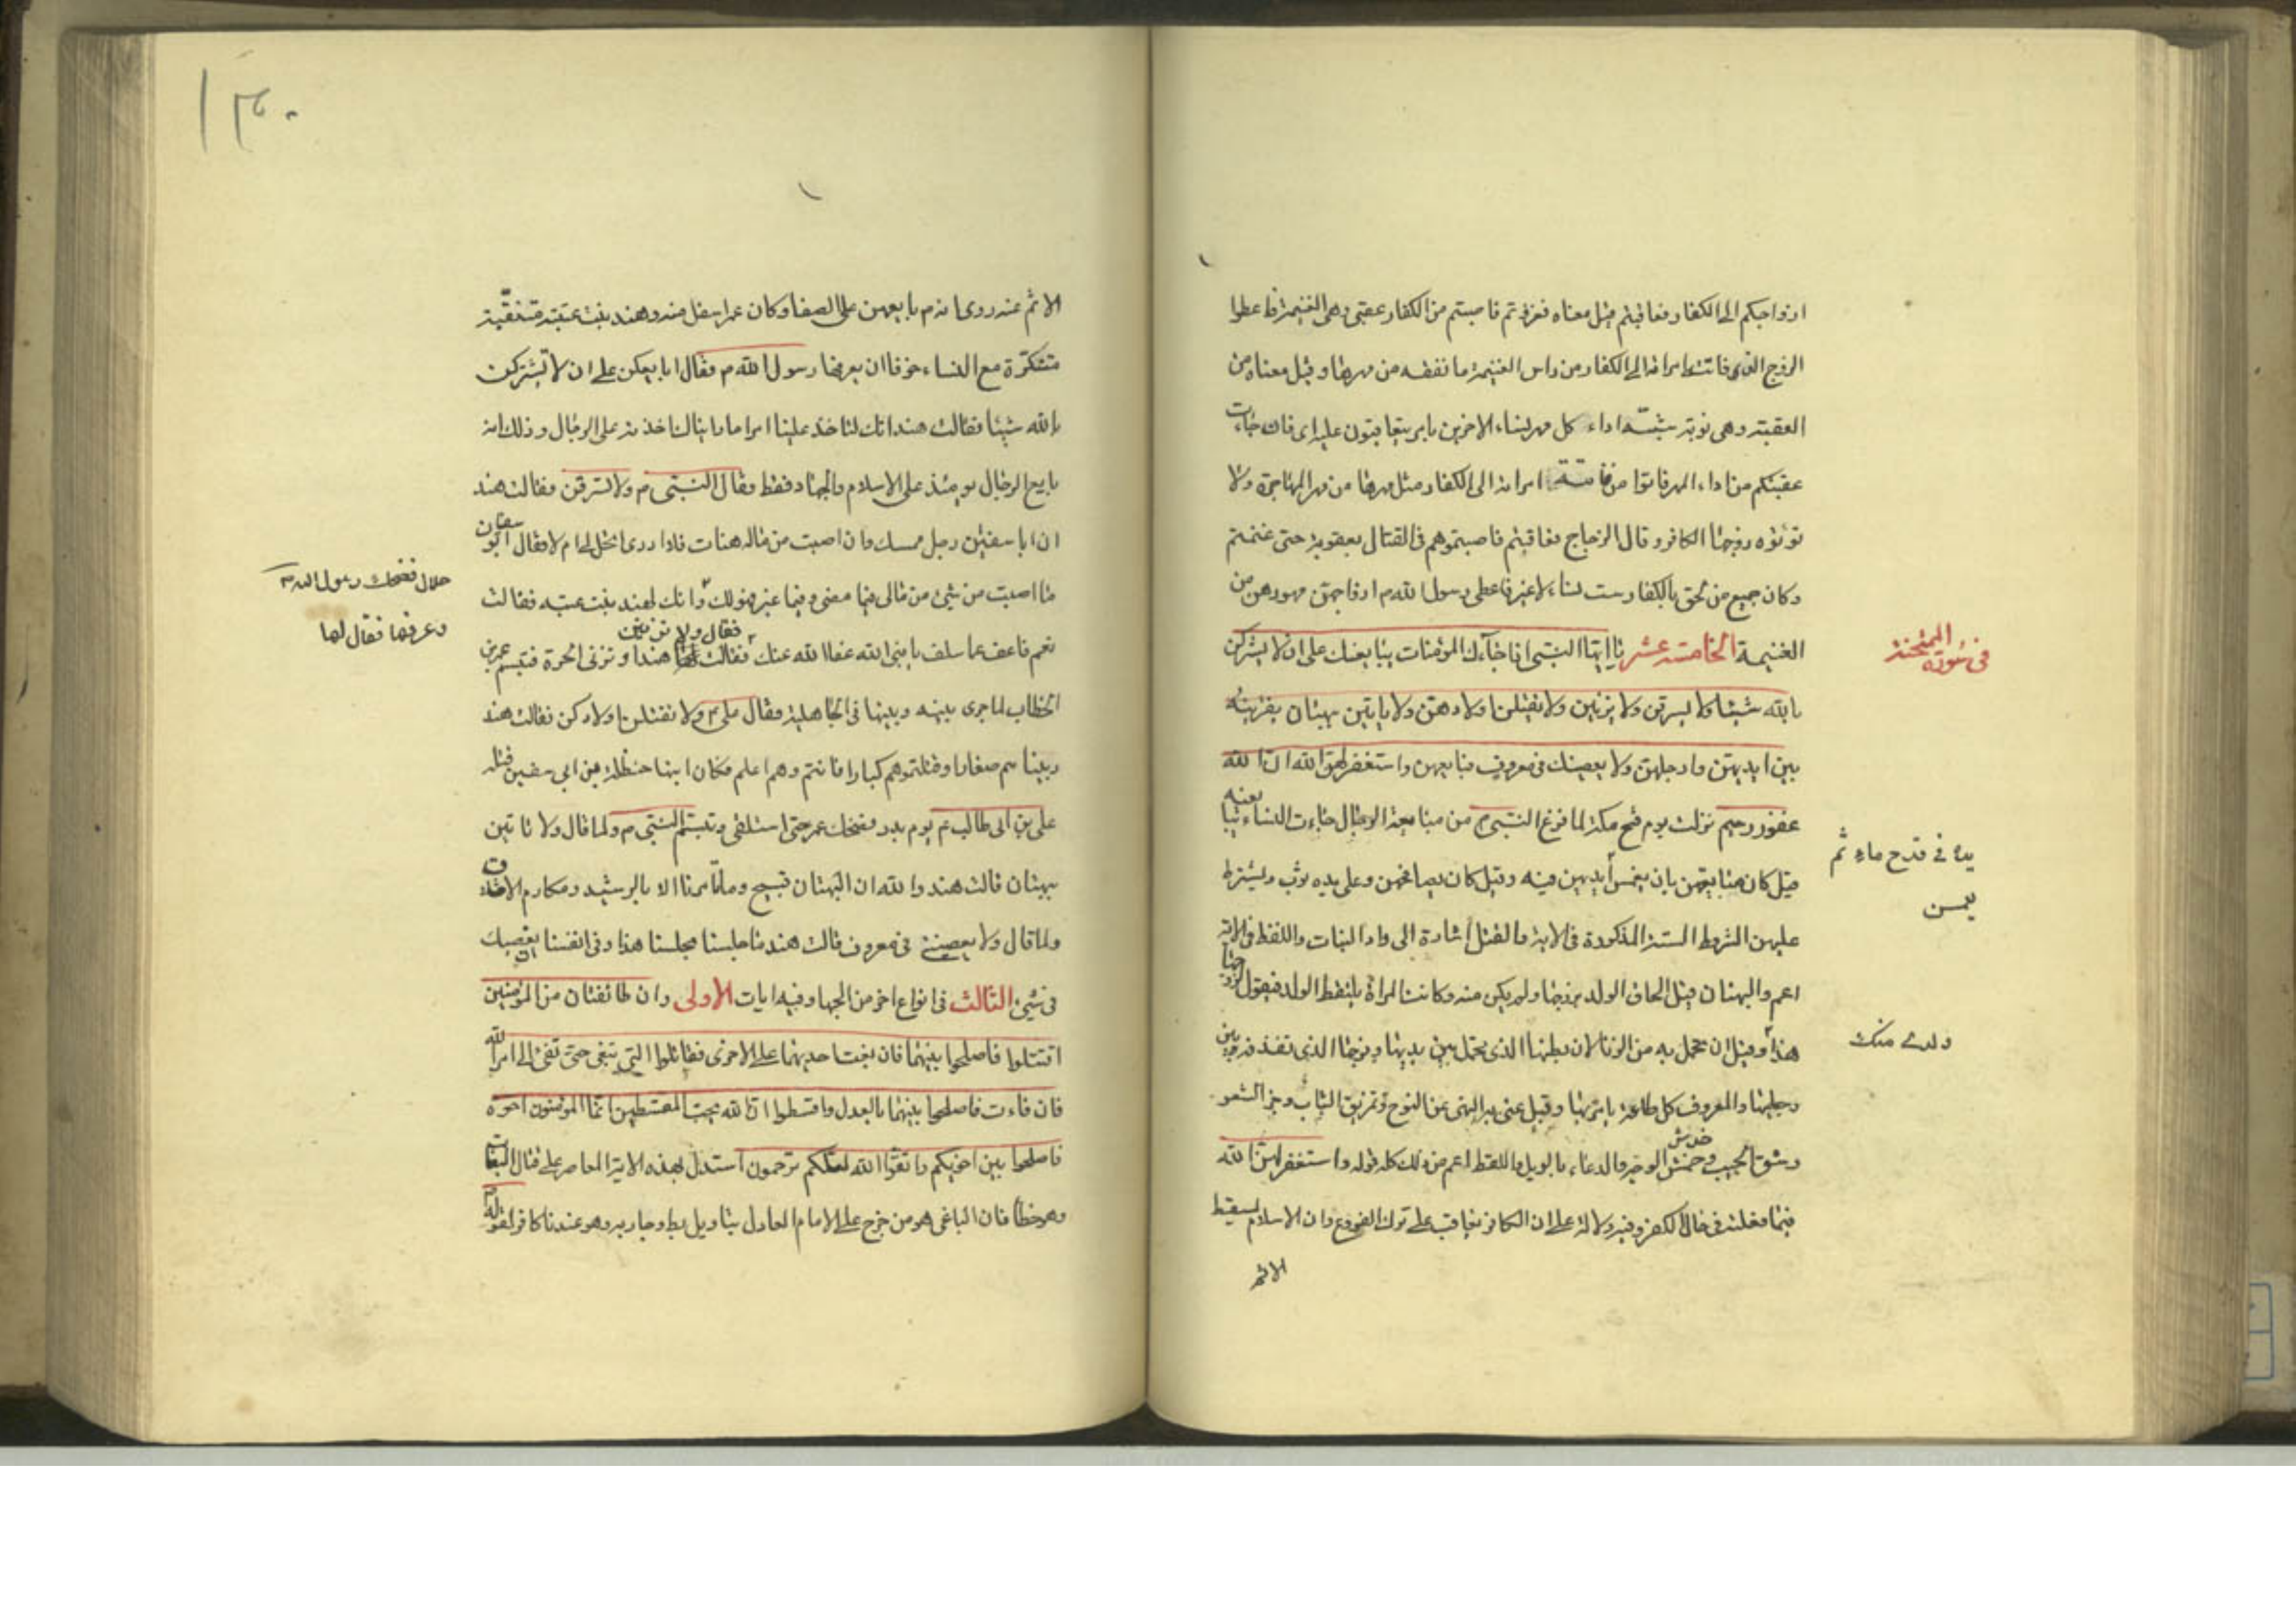 ازواجكم الى الكفار فعاقبتم قيل معناه فغزوتم فاصبتم من الكفار عقبى وهى الغنيمة فاعطوا
الزوج الذى فاتته امراته الى الكفار من راس الغنيمة ما نفقه من مهرها وقيل معناه من
العقبة وهى نوبة شبّه اداء كل مهر نساء الاخرين بامر يتعاقبون عليه اى فان جاءت
عقبتكم من اداء المهر فاتوا من فاتته امراته الى الكفار مثل مهرها من مهر المهاجرة ولا
تؤتوه زوجها الكافر وقال الزجاج فعاقبتم فاصبتموهم فى القتال بعقوبة حتى غنمتم
وكان جميع من لحق بالكفار ست نساء لا غير فاعطى رسول الله م ازواجهن مهورهن من
الغنيمة الخامسة عشر يا ايها النبى اذا جآءك المؤمنات يبايعنك على ان لا يشركن
فى سورة الممتحنة
بالله شيئا ولا يسرقن ولا يزنين ولا يقتلن اولادهن ولا ياتين ببهتان يفترينه
بين ايديهن وارجلهن ولا يعصينك فى معروف فبايعهن واستغفر لهن الله ان الله
غفور رحيم نزلت يوم فتح مكة لما فرغ النبى م من مبايعة الرجال جاءت النساء يبايعنه
قيل كان مبايعتهن بان يغمس ايديهن فيه وقيل كان يصافحهن وعلى يده ثوب ويشترط
يده فى قدح ماء ثم
يغمسن
عليهن الشروط الستة المذكورة فى الاية والقتل اشارة الى واد البنات واللفظ فى الاية
اعم والبهتان قيل الحاق الولد بزوجها ولم يكن منه وكانت المراة يلتقط الولد فيقول لزوجها
هذا وقيل ان تحمل به من الزنا لان بطنها الذى تحمل بين يديها وفرجها الذى تقذفه بين
ولدى منك
رجليها والمعروف كل طاعة يامر بها وقيل عنى به النهى عن النوح وتمزيق الثياب وجز الشعر
وشق الجيب وخمش الوجه والدعاء بالويل واللفظ اعم من ذلك كله قوله واستغفر لهن الله
خدش
فيما فعلنه فى حال الكفر وفيه دلالة على ان الكافر يعاقب على ترك الفروع وان الاسلام يسقط
الاثم
۱۳۰
الاثم عنه روى انه م بايعهن على الصفا وكان عمر اسفل منه وهند بنت عتبة متنقّبة
متنكرة مع النساء خوفا ان يعرفها رسول الله م فقال ابايعكن على ان لا تشركن
بالله شيئا فقالت هند انك لتاخذ علينا امرا ما راينالك اخذته على الرجال وذلك انه
بايع الرجال يومئذ على الاسلام والجهاد فقط فقال النبى م ولا تسرقن فقالت هند
ان ابا سفين رجل ممسك وان اصبت من ماله هنات فلا ادرى ايحل لى ام لا فقال ابو سفيان
ما اصبت من شئ من مالى فيما مضى وفيما غبر فهو لك وانك لهند بنت عتبه فقالت
حلال فضحك رسول الله م
وعرفها فقال لها
نعم فاعف عما سلف يا نبى الله عفا الله عنك فقالت هند او تزنى الحرة فتبسم عمر بن
فقال ولا تزنين
الخطاب لما جرى بينه وبينها فى الجاهلية فقال صلى م ولا تقتلن اولادكن فقالت هند
ربيناهم صغارا وقتلتموهم كبارا فانتم وهم اعلم فكان ابنها حنظلة بن ابى سفين قتله
على بن ابى طالب ع يوم بدر فضحك عمر حتى استلقى وتبسم النبى م ولما قال ولا تاتين
ببهتان قالت هند والله ان البهتان قبيح وما تامرنا الا بالرشيد ومكارم الاخلاق
ولما قال ولا يعصينك فى معروف قالت هند ما جلسنا مجلسنا هذا وفى انفسنا ان نعصيك
فى شئ الثالث فى انواع اخر من الجهاد فيه ايات الاولى وان طائفتان من المؤمنين
اقتتلوا فاصلحوا بينهما فان بغت احديهما على الاخرى فقاتلوا التى تبغى حتى تفئ الى امر الله
فان فاءت فاصلحوا بينهما بالعدل واقسطوا ان الله يحب المقسطين انما المؤمنون اخوة
فاصلحوا بين اخويكم واتقوا الله لعلكم ترحمون استدل بهذه الاية المعاصر على قتال البغاة
وهو خطا فان الباغى هو من خرج على الامام العادل بتاويل بط وحاربه وهو عندنا كافر لقوله